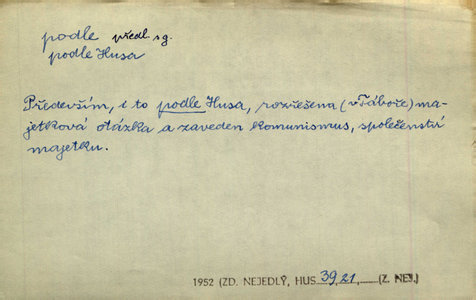 podle předl. s g.
podle Husa
Především, i to podle Husa, rozřešena (v Táboře) ma-
jetková otázka a zaveden komunismus, společenství
majetku.
1952 (ZD. NEJEDLÝ, HUS 39, 21, (Z. NEJ.)